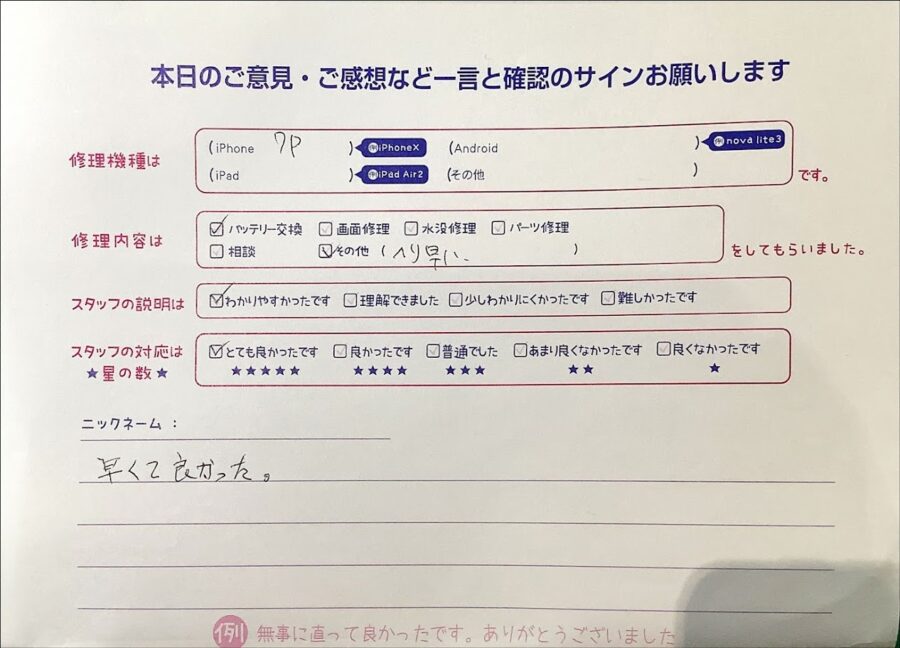 本日のご意見・ご感想など一言と確認のサインお願いします
修理機種は
(iPhone 7P ) 例iPhoneX (Android ) 例nova lite3
(iPad ) 例iPad Air2 (その他 )
です。
修理内容は
バッテリー交換 画面修理 水没修理 パーツ修理
相談 その他 ( へり早い、 )
をしてもらいました。
スタッフの説明は
わかりやすかったです 理解できました 少しわかりにくかったです 難しかったです
スタッフの対応は
★星の数★
とても良かったです 良かったです 普通でした あまり良くなかったです 良くなかったです
★★★★★ ★★★★ ★★★ ★★ ★
ニックネーム：
早くて良かった。
例 無事に直って良かったです。ありがとうございました